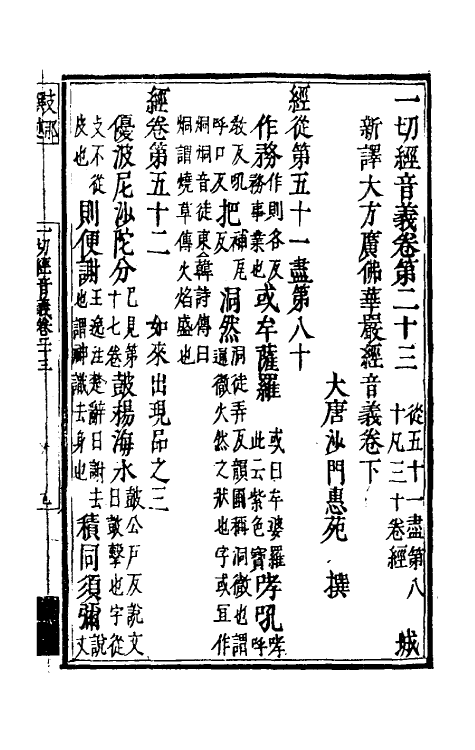 一切經音義卷第二十三 從五十一盡第八十凡三十卷經 城
新譯大方廣佛華嚴經音義卷下
大唐沙門惠苑 撰
經從第五十一盡第八十
作務 作則各反務事業也 或牟薩羅 或曰牟婆羅此云紫色寶 哮吼 哮呼
教反吼呼口反 把 補瓦反 洞然 洞徒弄反韻圃稱洞徹也謂遍徹火然之狀也字或宜作
烔烔音徒東韓詩傳曰烔謂燒草傳火焰盛也
經卷第五十二 如來出現品之三
優波尼沙陀分 已見第十七卷 鼓楊海水 鼓公戶反說文曰鼓擊也字從
攴不從皮也 則便謝 王逸注楚辭曰謝去也謂神識去身也 積同須彌 說文
一切經音義卷二十三